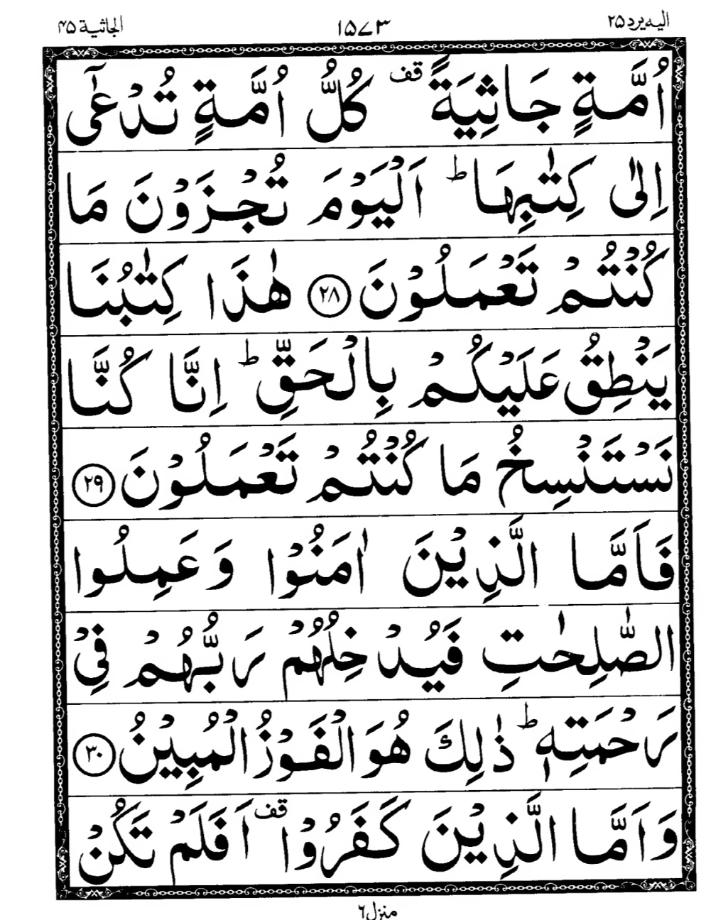 الیه یرد ۲۵ ۱۵۷۳ الجاثیة ۴۵
اُمَّةٍ جَاثِيَةً قف كُلُّ اُمَّةٍ تُدْعٰٓى
اِلٰى كِتٰبِهَا ؕ اَلْيَوْمَ تُجْزَوْنَ مَا
كُنْتُمْ تَعْمَلُوْنَ ۲۸ هٰذَا كِتٰبُنَا
يَنْطِقُ عَلَيْكُمْ بِالْحَقِّ ؕ اِنَّا كُنَّا
نَسْتَنْسِخُ مَا كُنْتُمْ تَعْمَلُوْنَ ۲۹
فَاَمَّا الَّذِيْنَ اٰمَنُوْا وَعَمِلُوا
الصّٰلِحٰتِ فَيُدْخِلُهُمْ رَبُّهُمْ فِيْ
رَحْمَتِهٖ ؕ ذٰلِكَ هُوَ الْفَوْزُ الْمُبِيْنُ ۳۰
وَاَمَّا الَّذِيْنَ كَفَرُوْا قف اَفَلَمْ تَكُنْ
منزل ۶